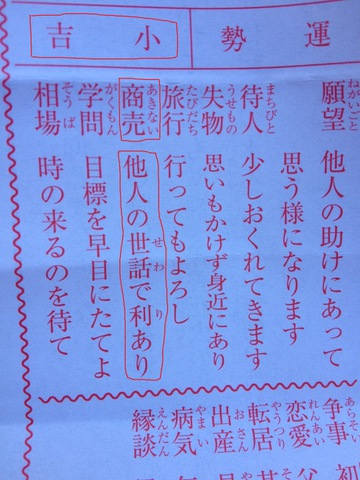 運勢
小吉
願望 他人の助けにあって
思う様になります
待人 まちびと 少しおくれてきます
失物 うせもの 思いもかけず身近にあり
旅行 たびだち 行ってもよろし
商売 あきない 他人の世話で利あり せわ り
学問 がくもん 目標を早目にたてよ
相場 そうば 時の来るのを待て
争事 あらそい 初
恋愛 れんあい 父
転居 やうつり
出産 おさん
病気 やまい
縁談 えんだん